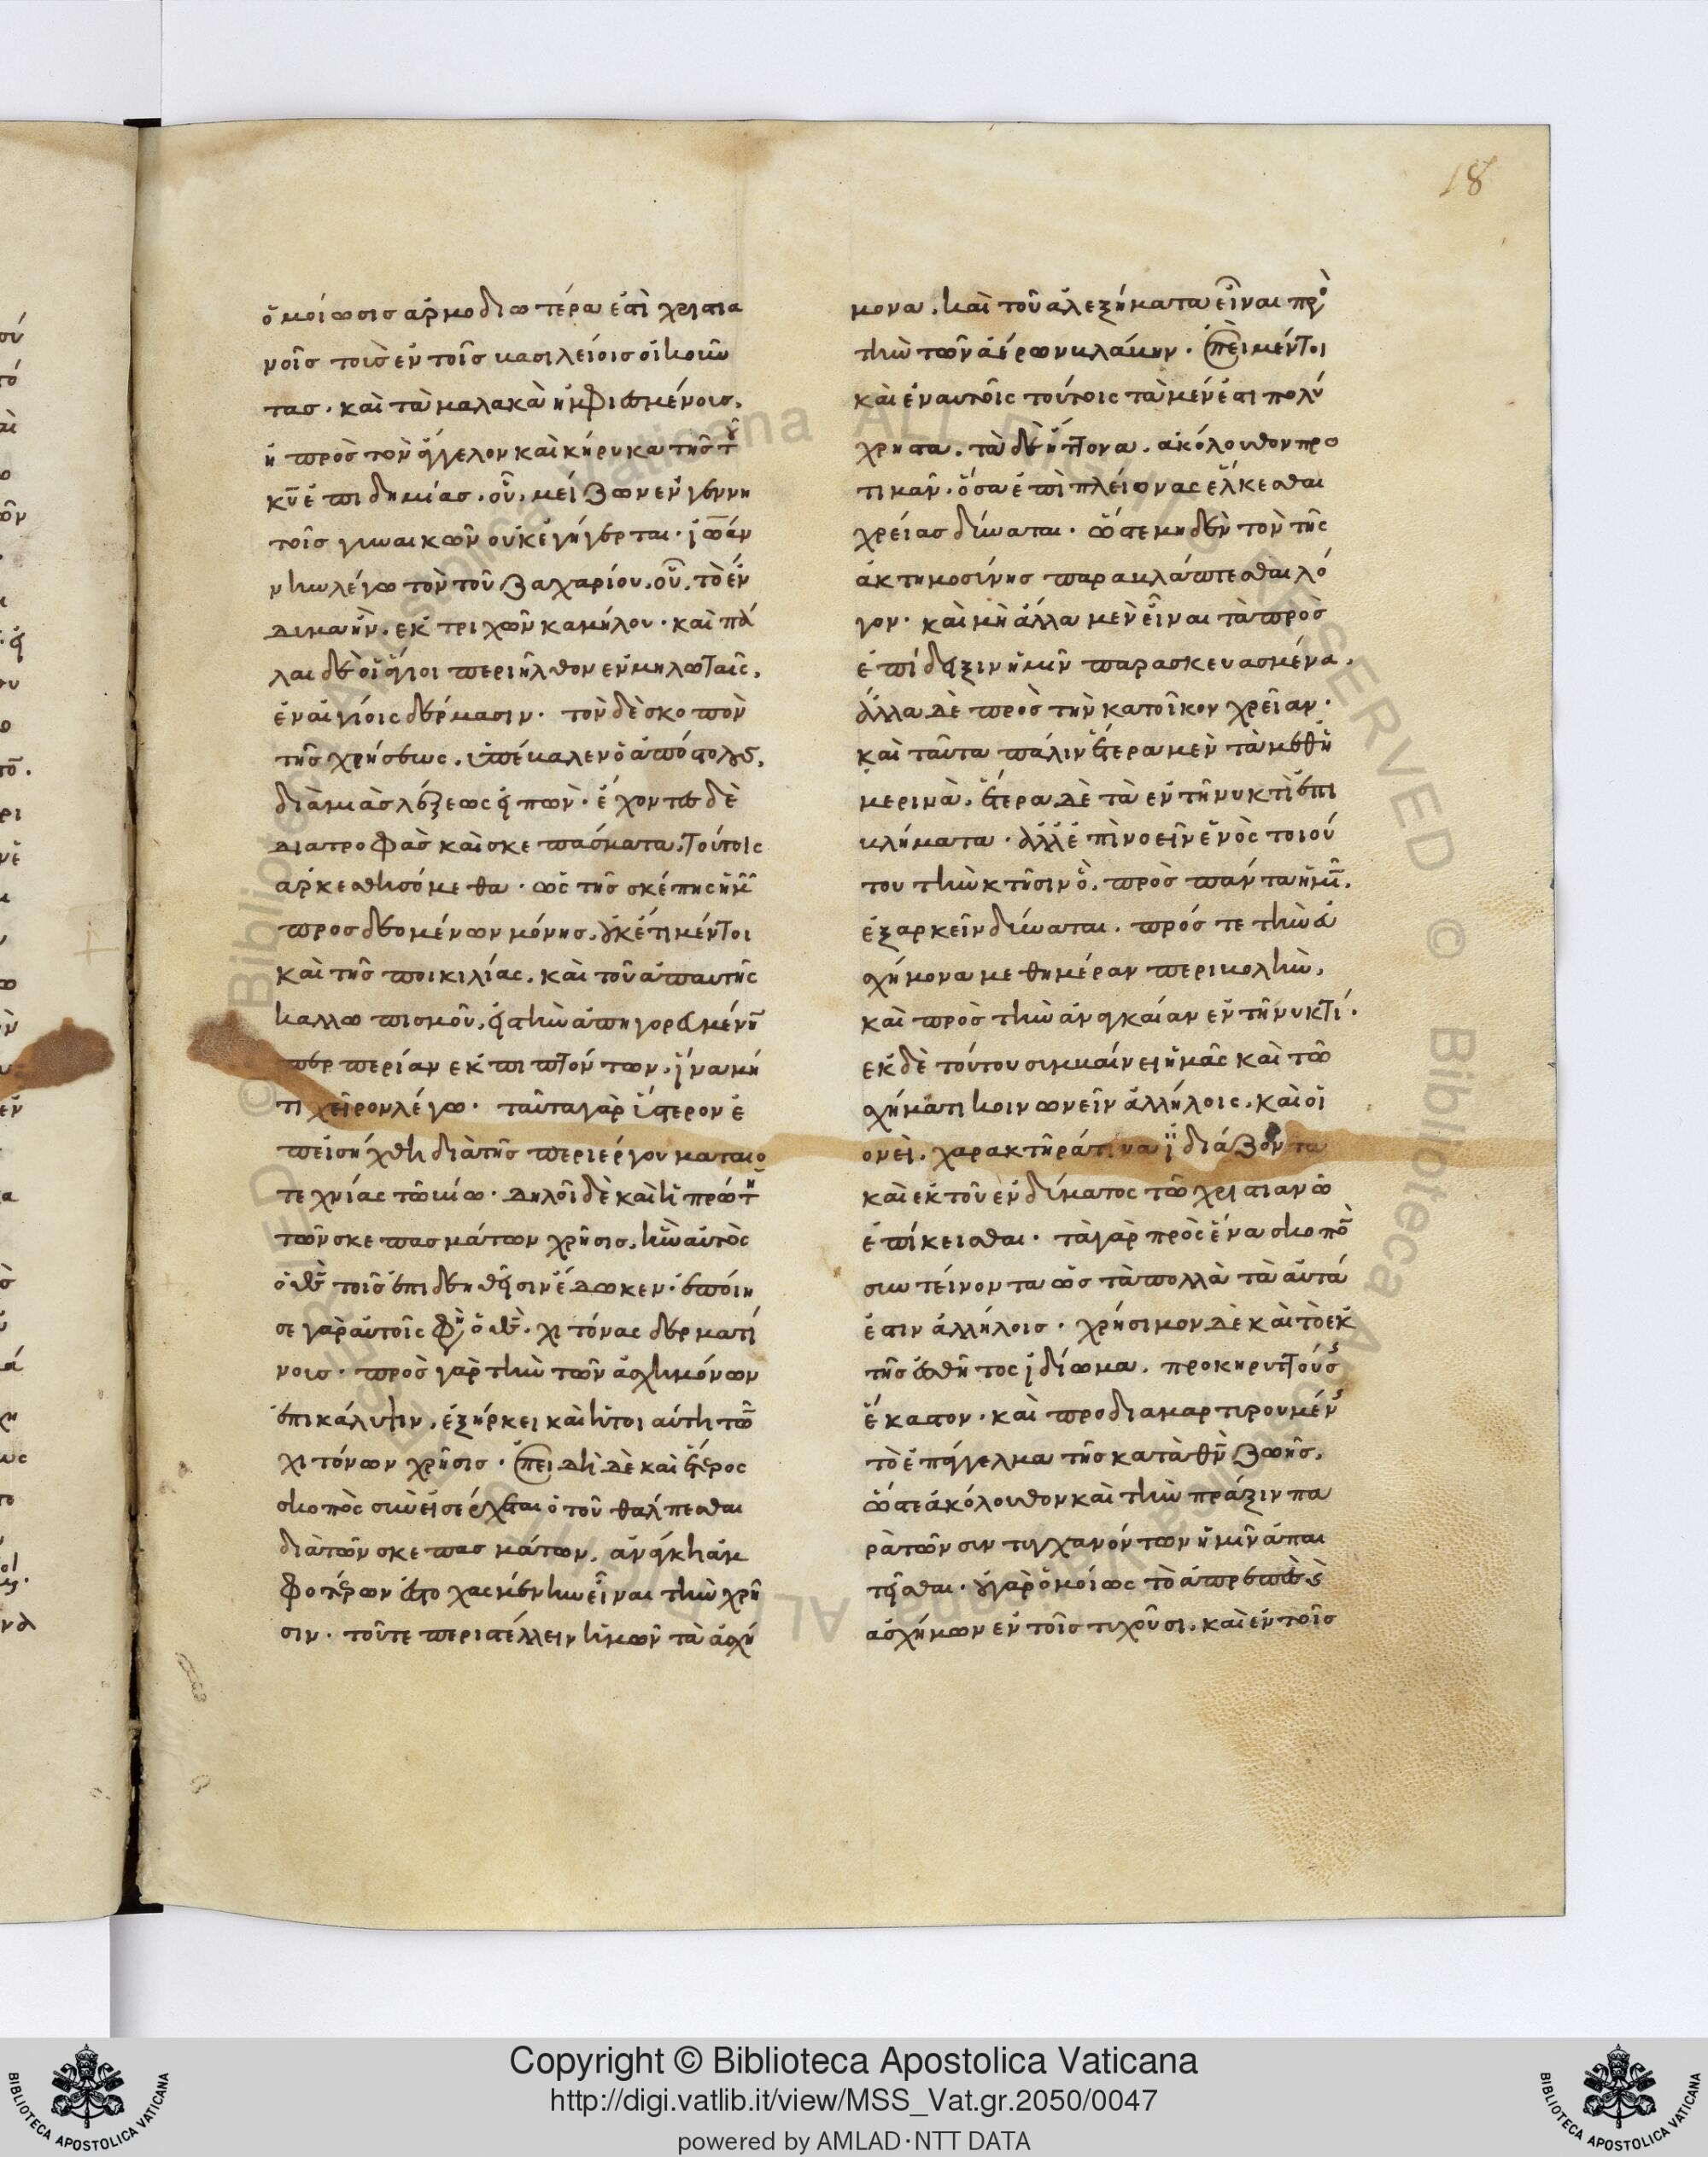 18
ὁμοίωσις ἁρμοδιωτέρα ἐστὶ χριστια
νοῖς τοῖς ἐν τοῖς βασιλείοις οἰκοῦν
τας. καὶ τὰ μαλακὰ ἠμφιεσμένοις.
ἢ πρὸς τὸν ἄγγελον καὶ κήρυκα τῆς τοῦ
κυ ἐπιδημίας. οὗ, μείζων ἐν γεννη
τοῖς γυναικῶν οὐκ ἐγήγερται. ἰωάν
νην λέγω τὸν τοῦ ζαχαρίου. οὗ, τὸ ἔν
δυμα ἦν. ἐκ τριχῶν καμήλου. καὶ πά
λαι δὲ οἱ ἅγιοι περιῆλθον ἐν μηλωταῖς,
ἐν αἰγίοις δέρμασιν. τὸν δὲ σκοπὸν
τῆς χρήσεως. ὑπέβαλεν ὁ ἀπόστολος,
διὰ μιᾶς λέξεως εἰπών. ἔχοντες δὲ
διατροφὰς καὶ σκεπάσματα, τούτοις
ἀρκεσθησόμεθα. ὡς τῆς σκέπης ἡμῖν
προσδεομένων μόνης. οὐκέτι μέντοι
καὶ τῆς ποικιλίας. καὶ τοῦ ἀπ αὐτῆς
καλλωπισμοῦ, εἰς τὴν ἀπηγορευμένην
περπερίαν ἐκπιπτόντων. ἵνα μή
τι χεῖρον λέγω. ταῦτα γὰρ ὕστερον ἐ
πεισήχθη διὰ τῆς περιέργου ματαιο
τεχνίας τῶ βίω. δηλοῖ δὲ καὶ ἡ πρώτη
τῶν σκεπασμάτων χρῆσις. ἣν αὐτὸς
ὁ θς τοῖς ἐπιδεηθεῖσιν ἔδωκεν. ἐποίη
σε γὰρ αὐτοῖς φησὶν ὁ θς. χιτόνας δερματί
νοις. πρὸς γὰρ τὴν τῶν ἀσχημόνων
ἐπικάλυψιν. ἐξήρκει καὶ ἡ τοιαύτη τῶν
χιτόνων χρῆσις. ἐπειδὴ δὲ καὶ ἕτερος
σκοπὸς συνεισέρχεται ὁ τοῦ θάλπεσθαι
διὰ τῶν σκεπασμάτων. ἀνάγκη ἀμ
φοτέρων ἐστοχασμένην εἶναι τὴν χρῆ
σιν. τοῦ τε περιστέλλειν ἡμῶν τὰ ἀσχή
μονα. καὶ τοῦ ἀλεξήματα εἶναι πρὸς
τὴν τῶν ἀέρων βλάβην. ἐπεὶ μέντοι
καὶ ἐν αὐτοῖς τούτοις τὰ μὲν ἐστι πολύ
χρηστα. τὰ δὲ ἧττονα. ἀκόλουθον προ
τιμᾶν. ὅσα ἐπὶ πλείονας ἕλκεσθαι
χρείας δύναται. ὥστε μηδὲν τὸν τῆς
ἀκτημοσύνης παραβλάπτεσθαι λό
γον. καὶ μὴ ἄλλα μὲν εἶναι τὰ πρὸς
ἐπίδειξιν ἡμῖν παρασκευασμένα.
ἄλλα δὲ πρὸς τὴν κατοῖκον χρεῖαν.
καὶ ταῦτα πάλιν ἕτερα μὲν τὰ μεθη
μερινὰ. ἕτερα δὲ τὰ ἐν τῆ νυκτὶ ἐπι
βλήματα. ἀλλ ἐπινοεῖν ἑνὸς τοιού
του τὴν κτῆσιν ὃ. πρὸς πάντα ἡμῖν.
ἐξαρκεῖν δύναται. πρός τε τὴν εὐ
σχήμονα μεθημέραν περιβολὴν.
καὶ πρὸς τὴν ἀναγκαίαν ἐν τῆ νυκτί.
ἐκ δὲ τούτου συμβαίνει ἡμᾶς καὶ τῶ
σχήματι κοινωνεῖν ἀλλήλοις. καὶ οἱ
ονεὶ. χαρακτῆρά τινα ἰδιάζοντα
καὶ ἐκ τοῦ ἐνδύματος τῶ χριστιανῶ
ἐπίκεισθαι. τὰ γὰρ πρὸς ἕνα σκοπὸν
συντείνοντα ὡς τὰ πολλὰ τὰ αὐτά
ἐστιν ἀλλήλοις. χρήσιμον δὲ καὶ τὸ ἐκ
τῆς ἐσθῆτος ἰδίωμα. προκηρύττούσης
ἕκαστον. καὶ προδιαμαρτυρουμένης
τὸ ἐπάγγελμα τῆς κατὰ θν ζωῆς.
ὥστε ἀκόλουθον καὶ τὴν πράξιν πα
ρὰ τῶν συντυγχανόντων ἡμῖν ἀπαι
τεῖσθαι. οὐ γὰρ ὁμοίως τὸ ἀπρεπὲς
ἀσχήμων ἐν τοῖς τυχοῦσι. καὶ ἐν τοῖς
© Biblioteca Apostolica Vaticana ALL RIGHTS RESERVED © Biblioteca Apostolica Vaticana ALL RIGHTS RESERVED
Copyright © Biblioteca Apostolica Vaticana
http://digi.vatlib.it/view/MSS_Vat.gr.2050/0047
powered by AMLAD·NTT DATA
BIBLIOTECA APOSTOLICA VATICANA
BIBLIOTECA APOSTOLICA VATICANA